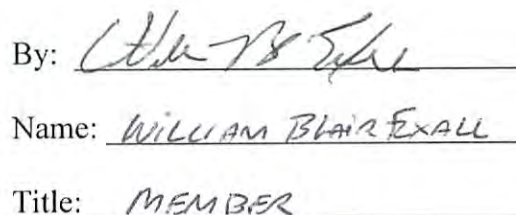 By:
Name: WILLIAM BLAIR EXALL
Title: MEMBER